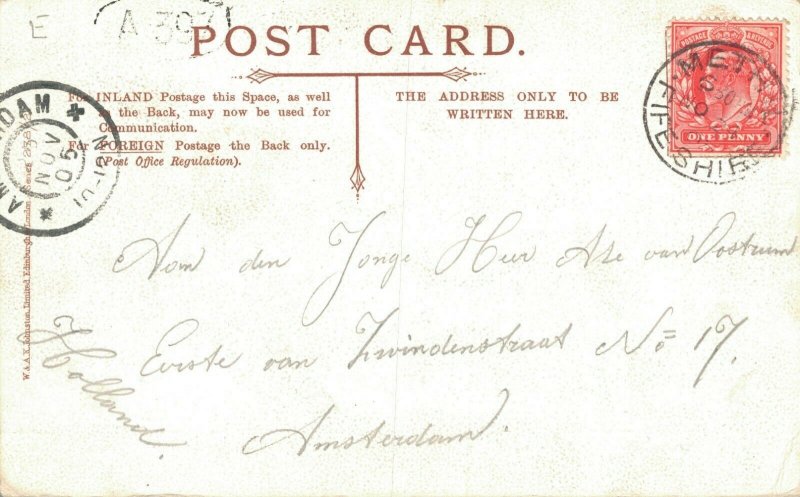 E
A 397
POST CARD.
For INLAND Postage this Space, as well
as the Back, may now be used for
Communication.
For FOREIGN Postage the Back only.
(Post Office Regulation).
THE ADDRESS ONLY TO BE
WRITTEN HERE.
POSTAGE & REVENUE
ONE PENNY
FIFESHIRE
NOV
05
W. & A.K. Johnston, Limited, Edinburgh London
Aan den Jonge Heer van Oostrum
Eerste van Zwindenstraat No= 17.
Amsterdam.
Holland.